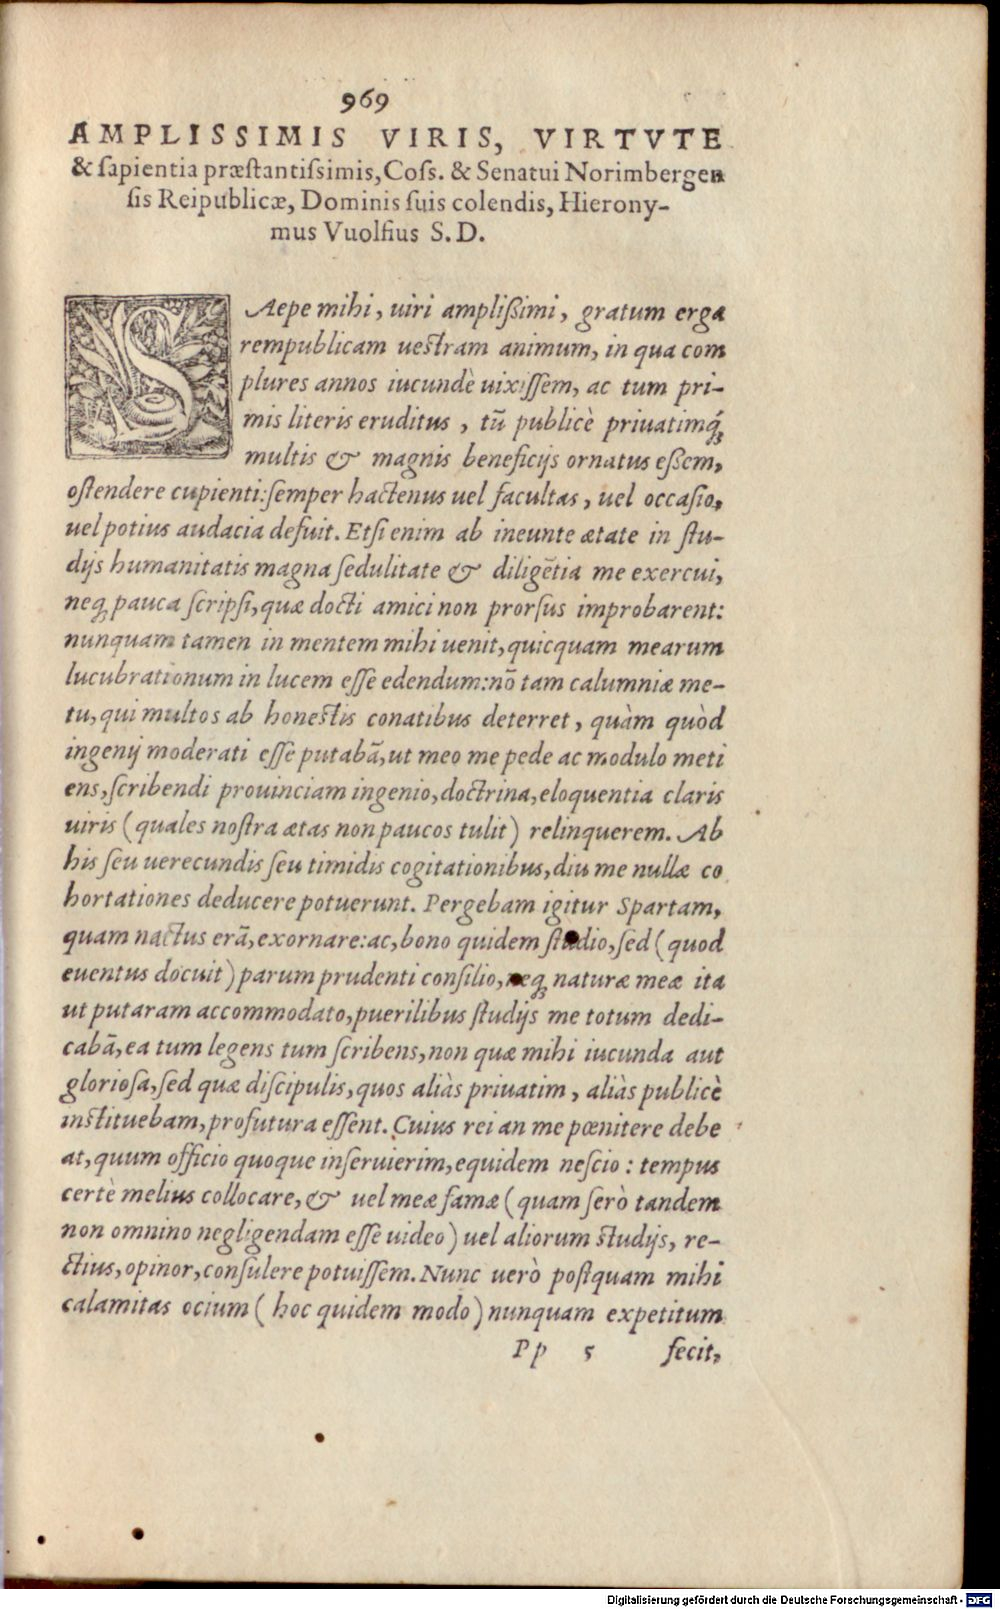 969
AMPLISSIMIS VIRIS, VIRTVTE
& ſapientia præſtantiſsimis, Coſs. & Senatui Norimbergen
ſis Reipublicæ, Dominis ſuis colendis, Hierony-
mus Vuolfius S. D.
SAepe mihi, uiri ampliſsimi, gratum erga
rempublicam ueſtram animum, in qua com
plures annos iucundè uixiſſem, ac tum pri-
mis literis eruditus, tū publicè priuatimq́;
multis & magnis beneficijs ornatus eſſem,
oſtendere cupienti: ſemper hactenus uel facultas, uel occaſio,
uel potius audacia defuit. Etſi enim ab ineunte ætate in ſtu-
dijs humanitatis magna ſedulitate & diligētia me exercui,
neq; pauca ſcripſi, quæ docti amici non prorſus improbarent:
nunquam tamen in mentem mihi uenit, quicquam mearum
lucubrationum in lucem eſſe edendum: nō tam calumniæ me-
tu, qui multos ab honeſtis conatibus deterret, quàm quòd
ingenij moderati eſſe putabā, ut meo me pede ac modulo meti
ens, ſcribendi prouinciam ingenio, doctrina, eloquentia claris
uiris (quales noſtra ætas non paucos tulit) relinquerem. Ab
his ſeu uerecundis ſeu timidis cogitationibus, diu me nullæ co
hortationes deducere potuerunt. Pergebam igitur Spartam,
quam nactus erā, exornare: ac, bono quidem ſtudio, ſed (quod
euentus docuit) parum prudenti conſilio, neq; naturæ meæ ita
ut putaram accommodato, puerilibus ſtudijs me totum dedi-
cabā, ea tum legens tum ſcribens, non quæ mihi iucunda aut
glorioſa, ſed quæ diſcipulis, quos aliàs priuatim, aliàs publicè
inſtituebam, profutura eſſent. Cuius rei an me pœnitere debe
at, quum officio quoque inſeruierim, equidem neſcio: tempus
certè melius collocare, & uel meæ famæ (quam ſerò tandem
non omnino negligendam eſſe uideo) uel aliorum ſtudijs, re-
ctius, opinor, conſulere potuiſſem. Nunc uerò poſtquam mihi
calamitas ocium (hoc quidem modo) nunquam expetitum
Pp 5 fecit,
Digitalisierung gefördert durch die Deutsche Forschungsgemeinschaft - DFG